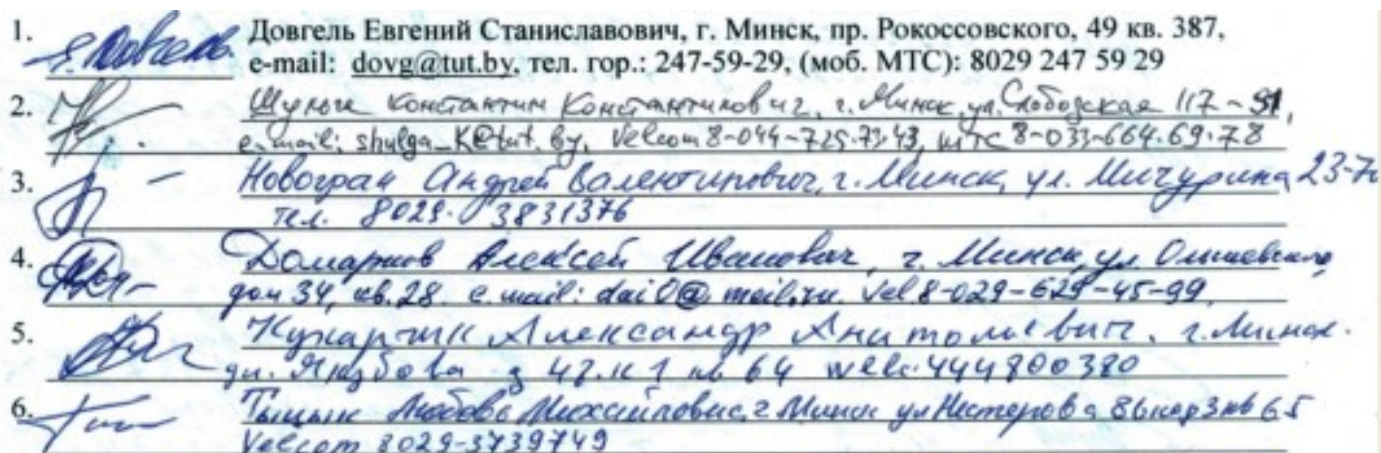 1. Довгель Евгений Станиславович, г. Минск, пр. Рокоссовского, 49 кв. 387,
e-mail: dovg@tut.by, тел. гор.: 247-59-29, (моб. МТС): 8029 247 59 29
2. Шульга Константин Константинович, г. Минск, ул. Слободская 117-91,
e-mail: shulga_K@tut.by, Velcom 8-044-725-73-43, МТС 8-033-664-69-78
3. Новогран Андрей Валентинович, г. Минск, ул. Мичурина 23-
тел. 8029. 3831376
4. Алексей Иванович, г. Минск, ул.
дом 34, кв. 28. e.mail: dai0@mail.ru. Vel 8-029-629-45-99.
5. Кухарчик Александр Анатольевич. г. Минск.
ул. Якубова д 42. к 1 кв 64 welc. 444800380
6. Тыцык Любовь Михайловна, г Минск ул Нестерова 86 кор 3 кв 65
Velcom 8029-3739749